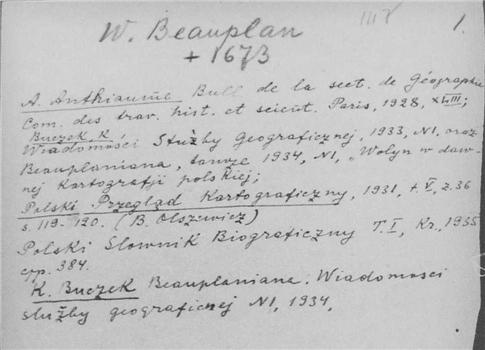 1.
W. Beauplan
+ 1673
A. Anthiaume Bull de la sect. de Géographie
Com. des trav. hist. et scient. Paris, 1928, XLIII;
Buczek K.
Wiadomości Służby Geograficznej, 1933, N1, oraz
Beauplaniana, tamże 1934, N1, „Wołyn w daw-
nej Kartografji polskiej;
Polski Przegląd Kartograficzny, 1931, t. V, z. 36
s. 119-120. (B. Olszewicz)
Polski Słownik Biograficzny T. I, Kr., 1935
стр. 384.
K. Buczek Beauplaniana. Wiadomości
służby geograficznej N1, 1934,